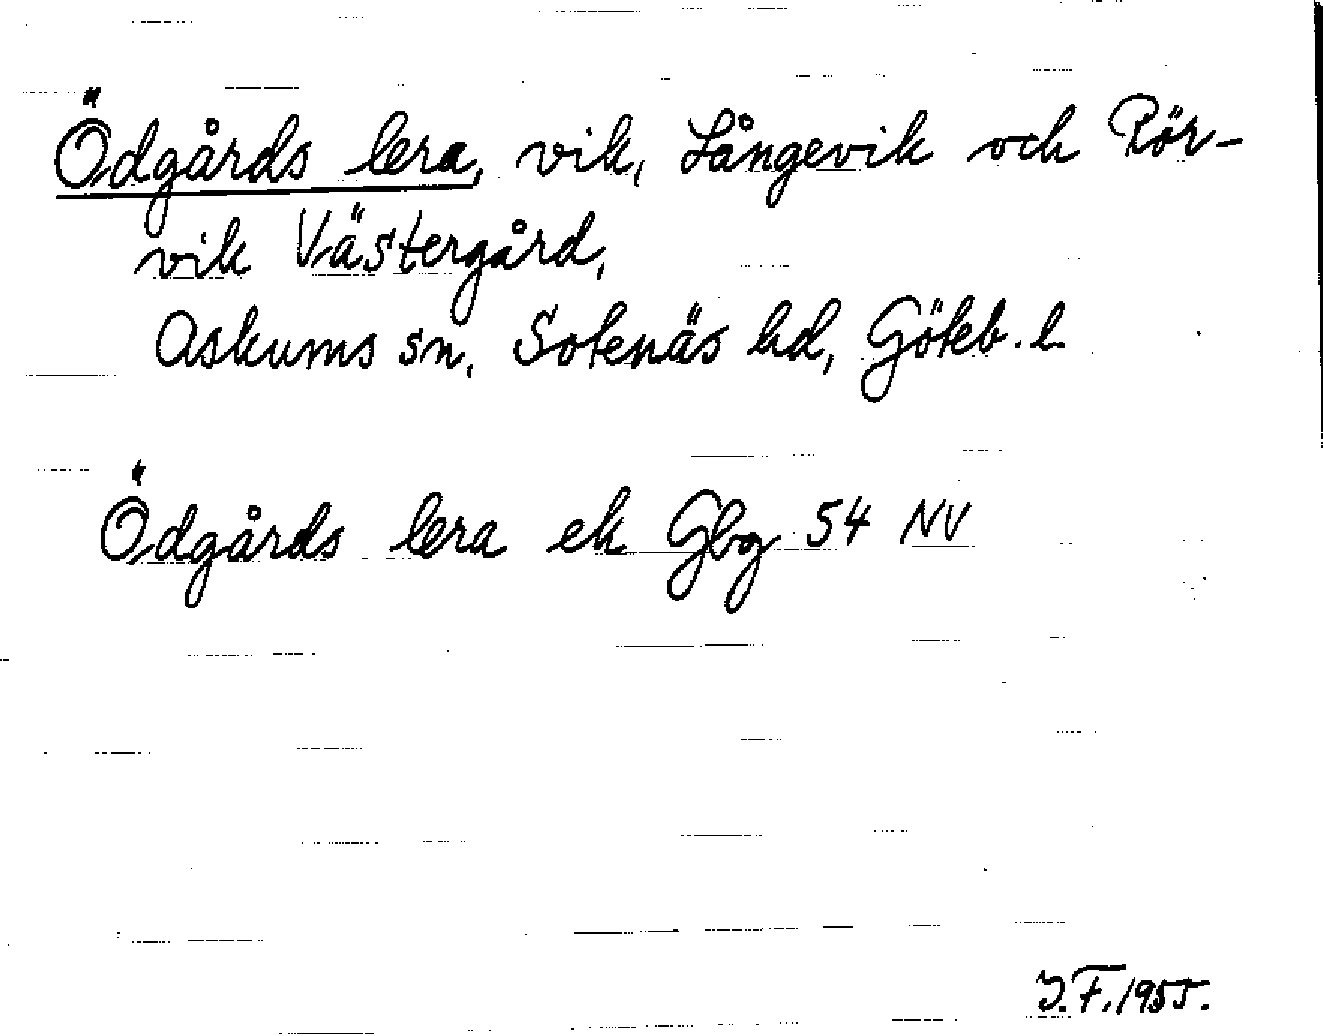 Ödgårds lera, vik, Långevik och Rör-
vik Västergård,
Askums sn, Sotenäs hd, Göteb. l.
Ödgårds lera ek Gbg 54 NV
J.F. 1955.